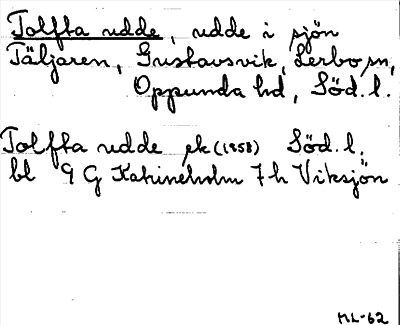 Tolfta udde, udde i sjön
Täljaren, Gustavsvik, Lerbo sn,
Oppunda hd, Söd. l.
Tolfta udde ek (1958) Söd. l.
bl 9 G Katrineholm 7 h Viksjön
ML-62